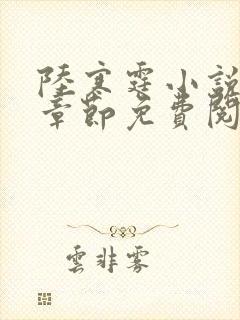 陸寒霆小說
章節免費閱
雲非雾